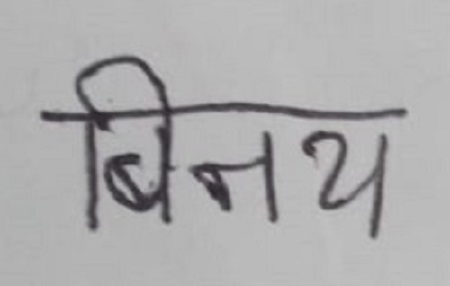 बिनय